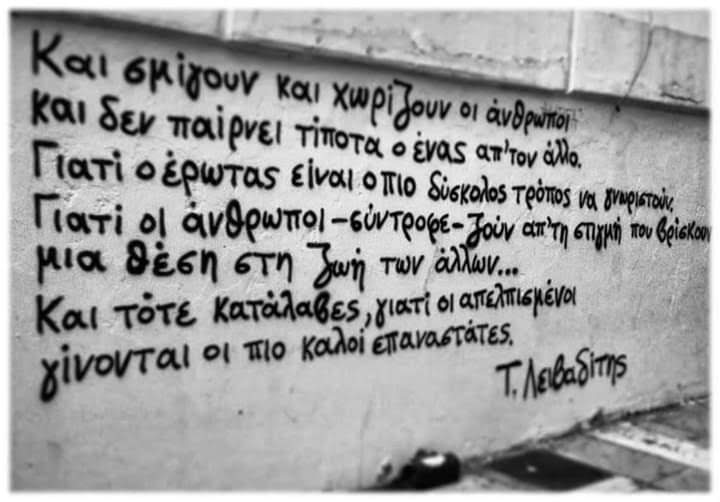 Και σμίγουν και χωρίζουν οι άνθρωποι
και δεν παίρνει τίποτα ο ένας απ'τον άλλο.
Γιατί ο έρωτας είναι ο πιο δύσκολος τρόπος να γνωριστούν.
Γιατί οι άνθρωποι -σύντροφε- ζούν απ'τη στιγμή που βρίσκουν
μια θέση στη ζωή των άλλων...
Και τότε κατάλαβες, γιατί οι απελπισμένοι
γίνονται οι πιο καλοί επαναστάτες.
Τ. Λειβαδίτης